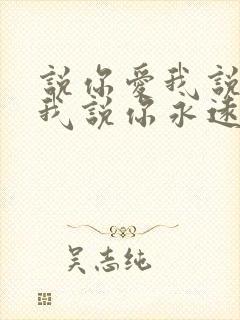 說你愛我說
我說你永遠
吴志纯